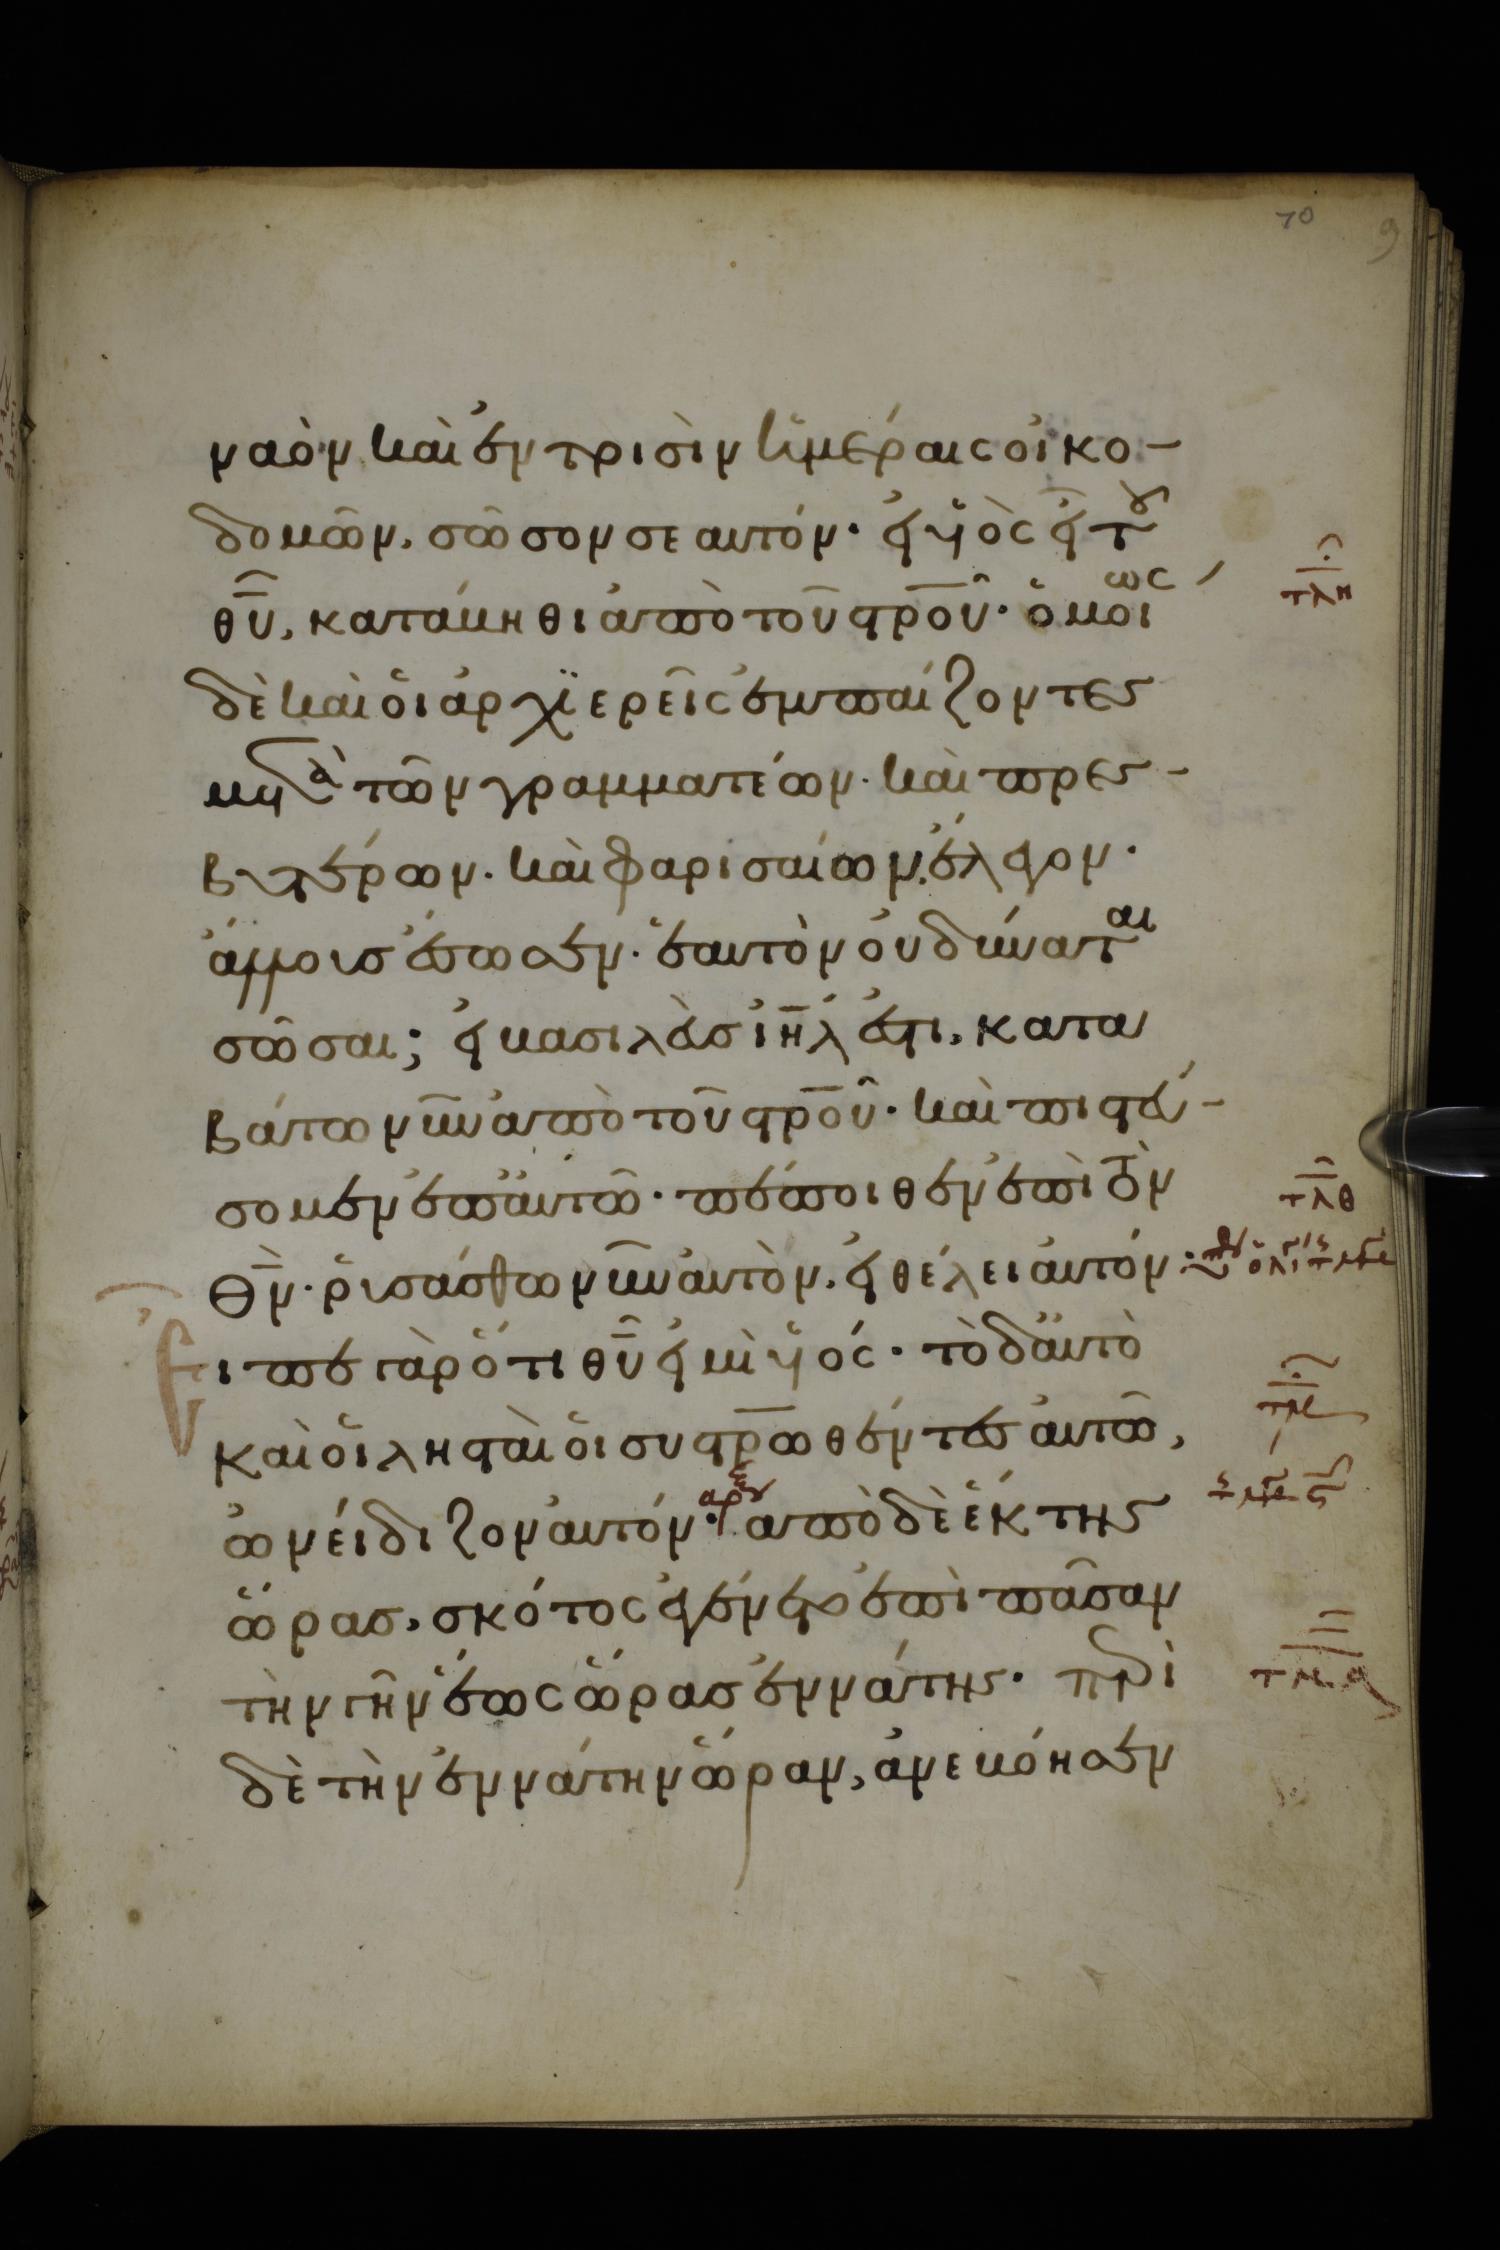 70
ναὸν καὶ ἐν τρισὶν ἡμέραις οἰκο-
δομῶν, σῶσον σεαυτόν· εἰ υἱὸς εἶ τοῦ
θῦ, κατάβηθι ἀπὸ τοῦ στροῦ· ὁμοίως
δὲ καὶ οἱ ἀρχϊερεῖς ἐμπαίζοντες
μετὰ τῶν γραμματέων· καὶ πρες-
βυτέρων· καὶ φαρισαίων, ἔλεγον·
ἄλλους ἔσωσεν· ἑαυτὸν οὐ δύναται
σῶσαι; εἰ βασιλεὺς ἰηλ ἐστι, κατα
βάτω νῦν ἀπὸ τοῦ στροῦ· καὶ πιστεύ-
σομεν ἐπ' αὐτῶ· πέποιθεν ἐπὶ τὸν
θν· ῥυσάσθω νῦν αὐτὸν, εἰ θέλει αὐτόν·
εἶπε γὰρ ὅτι θῦ εἰμὶ υἱός· τὸ δ' αὐτὸ
καὶ οἱ λησταὶ οἱ συστρωθέντες αὐτῶ,
ὠνείδιζον αὐτόν· ἀπὸ δὲ ἕκτης
ὥρας, σκότος ἐγένετο ἐπὶ πᾶσαν
τὴν γῆν ἕως ὥρας ἐννάτης· περὶ
δὲ τὴν ἐννάτην ὥραν, ἀνεβόησεν
τλη
τλθ
τμ
τμα